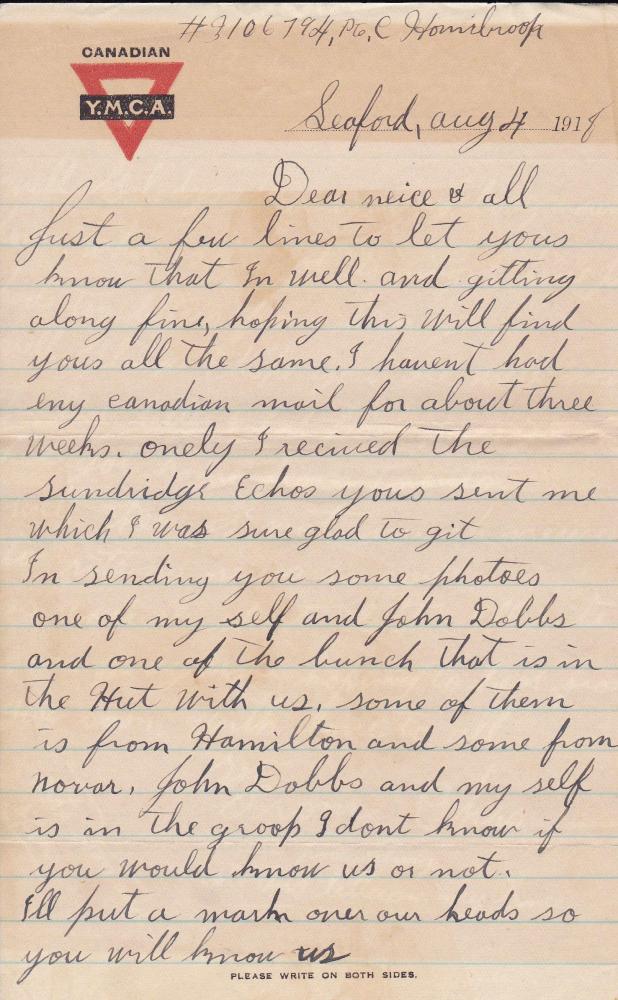 #3106794, Pte, C Hornibroop
CANADIAN
Y.M.C.A.
Seaford, aug 4 1918
Dear neice & all
Just a few lines to let yous
know that Im well. and gitting
along fine, hoping this will find
yous all the same. I havent had
eny canadian mail for about three
weeks. onely I recived the
sundridge Echos yous sent me
which I was sure glad to git
Im sending you some photoes
one of my self and John Dobbs
and one of the bunch that is in
the Hut with us, some of them
is from Hamilton and some from
novar, John Dobbs and my self
is in the groop I dont know if
you would know us or not.
I'll put a mark over our heads so
you will know us
PLEASE WRITE ON BOTH SIDES.